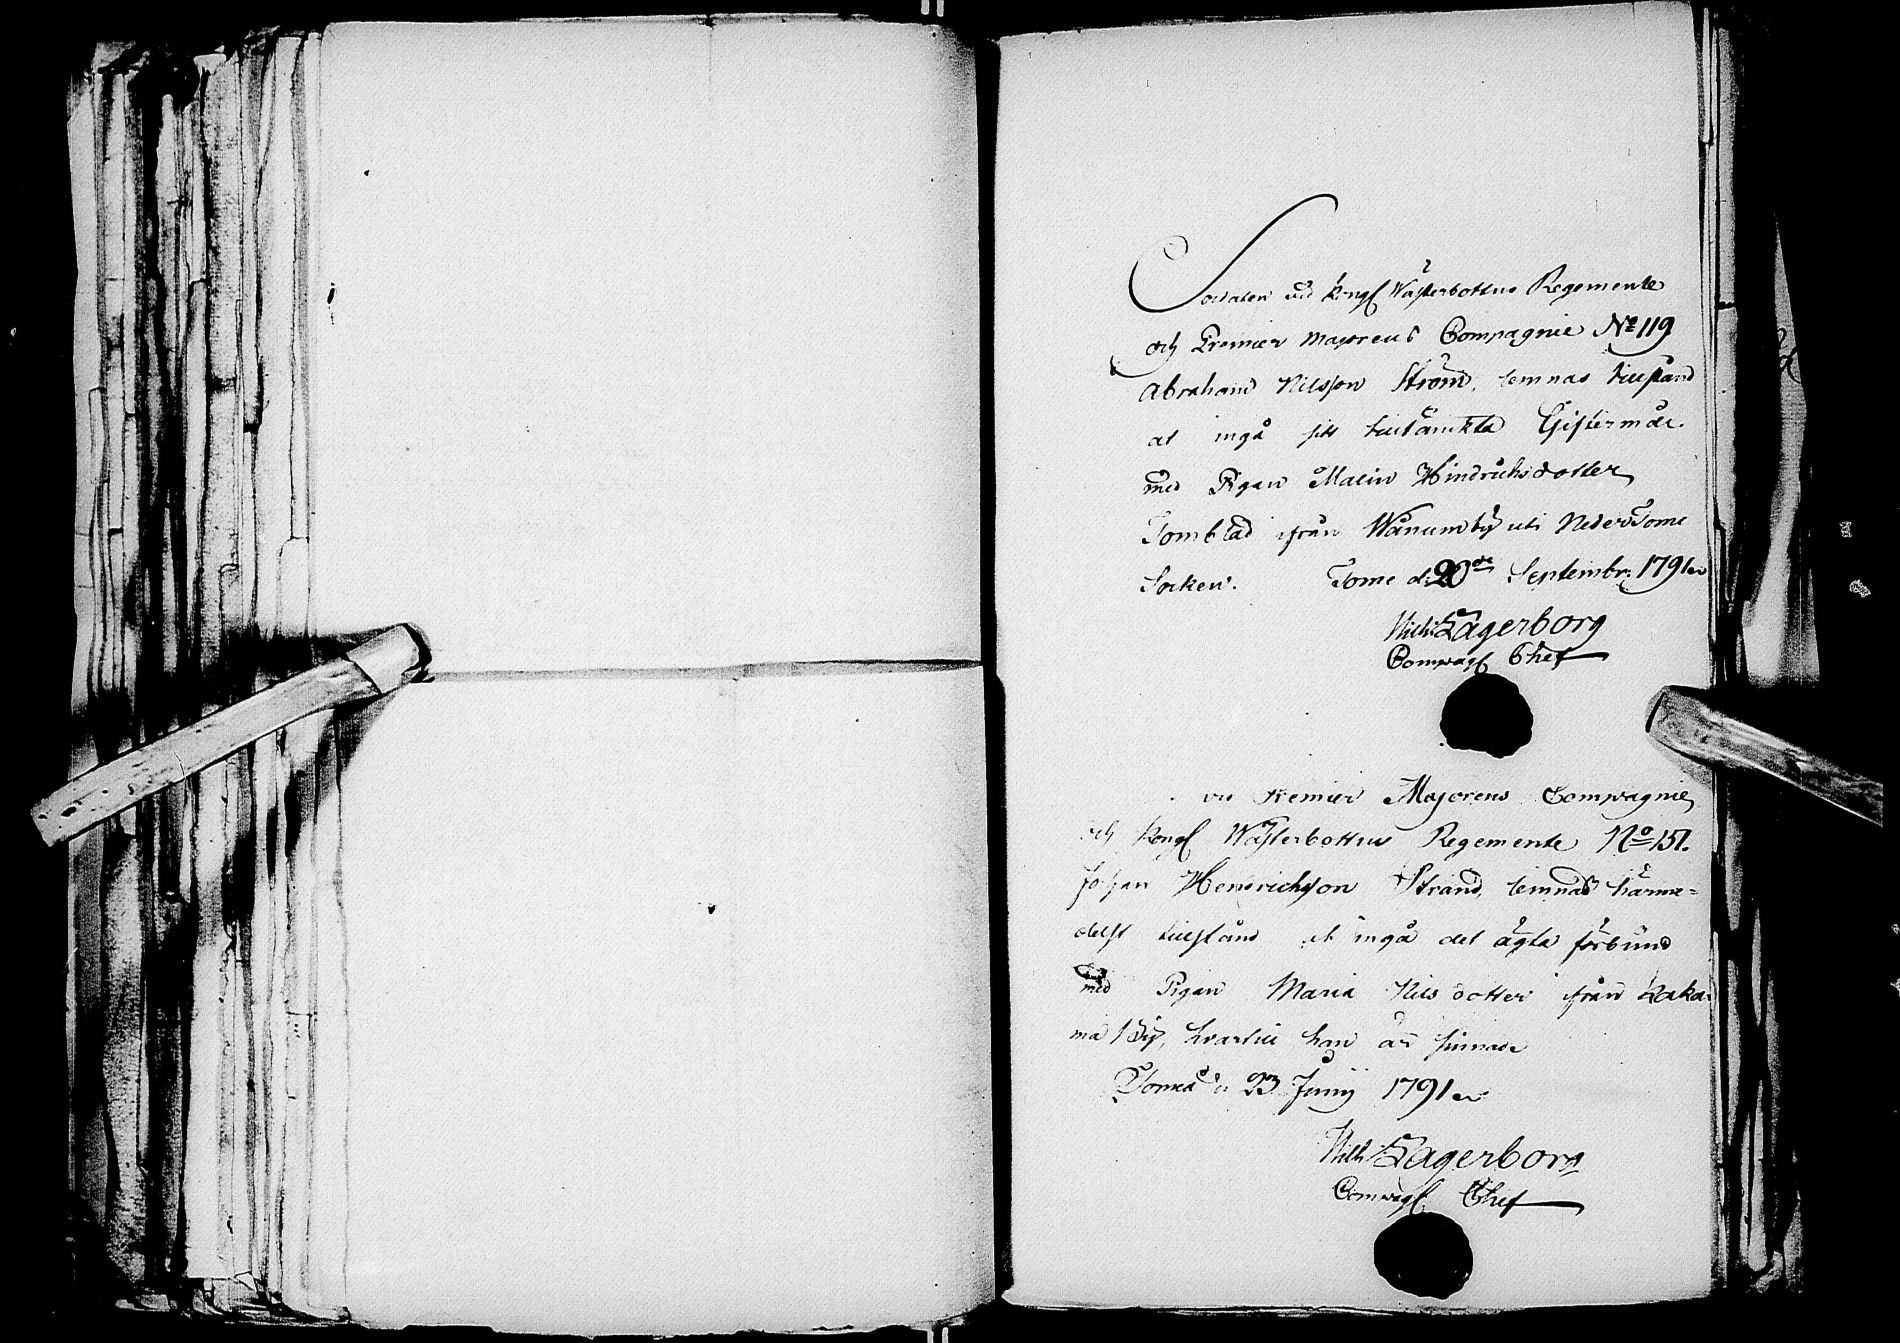 Soldaten vid Kongl Wästerbottns Regemente
och Premier Majorens Compagnie No 119
Abraham Nilsson Ström, lemnas tillstånd
at ingå sitt tilltänkta Giftermål
med Pigan Malin Hindrichsdotter
Tomblad ifrån Wånumby uti Neder Tome
Socken. Tome d: 20de Septembr: 1791
Wilh: Lagerborg
Compagl Chef
vid Premier Majorens Compagnie
och Kongl Wästerbottns Regemente No 151.
Johan Hendrichsson Strand, lemnas härme=
delst tillstånd at ingå det ägta förbund
med Pigan Maria Nilsdotter ifrån Laka-
ma By, hvartill han är sinnad
Torneå d: 23 Junij 1791
Wilh: Lagerborg
Compagl Chef